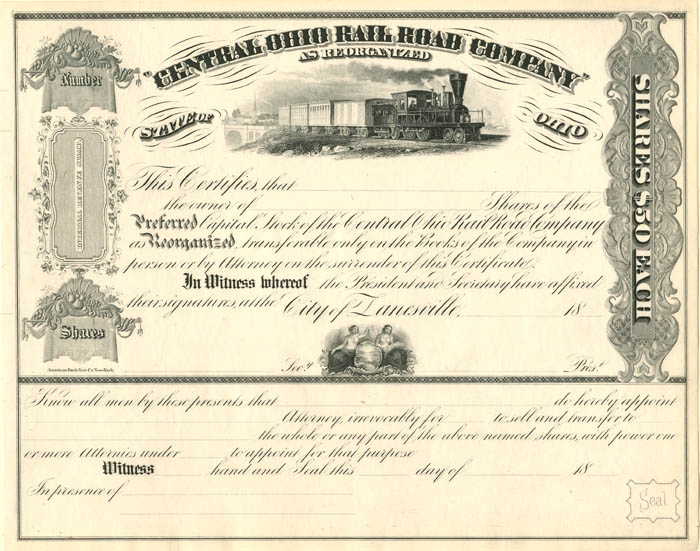 "CENTRAL OHIO RAIL ROAD COMPANY"
AS REORGANIZED
STATE OF OHIO
Number
SHARES $50 EACH
This Certifies, that
the owner of Shares of the
Preferred Capital Stock of the Central Ohio Rail Road Company
as Reorganized, transferable only on the Books of the Company in
person or by Attorney on the surrender of this Certificate.
In Witness whereof the President and Secretary have affixed
their signatures, at the City of Zanesville, 18
Shares
American Bank Note Co. New-York.
Secy. Prest.
Know all men by these presents that do hereby appoint
Attorney, irrevocably for to sell and transfer to
the whole or any part of the above named shares, with power one
or more Attornies under to appoint for that purpose
Witness hand and Seal this day of 18
In presence of
Seal